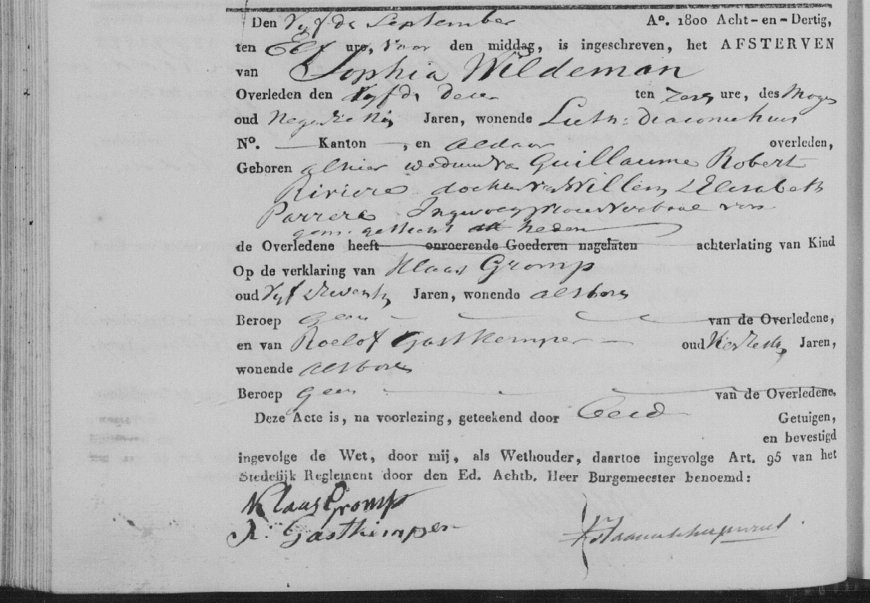 Den Vyfde September A°. 1800 Acht-en-Dertig,
ten Elf ure, voor den middag, is ingeschreven, het AFSTERVEN
van Sophia Wildeman
Overleden den Vyfde dezer ten zes ure, des Morgens
oud Jaren, wonende Luth: Diaconiehuis
N°. — Kanton —, en aldaar overleden,
Geboren alhier weduwe van Guillaume Robert
Riviere dochter van Willem & Elisabeth
Parrera Ingevolge
heden
de Overledene heeft onroerende Goederen nagelaten achterlating van Kind
Op de verklaring van Klaas Gromp
oud Vyf & zeventig Jaren, wonende als boven
Beroep geen van de Overledene,
en van Roelof Gastkemper oud Jaren,
wonende als boven
Beroep geen van de Overledene,
Deze Acte is, na voorlezing, geteekend door Getuigen,
en bevestigd
ingevolge de Wet, door mij, als Wethouder, daartoe ingevolge Art. 95 van het
Stedelijk Reglement door den Ed. Achtb. Heer Burgemeester benoemd:
Klaas Gromp
R. Gastkemper